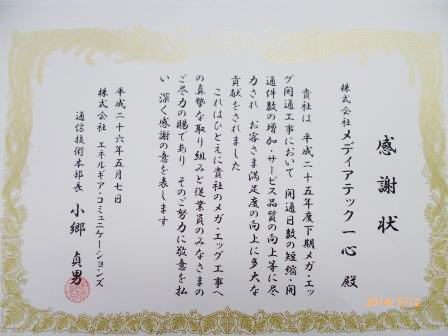 感謝状
株式会社メディアテック一心 殿
貴社は 平成二十五年度下期メガ・エッ
グ開通工事において 開通日数の短縮・開
通件数の増加・サービス品質の向上等に尽
力され お客さま満足度の向上に多大な
貢献をされました
これはひとえに貴社のメガ・エッグ工事へ
の真摯な取り組みと従業員のみなさまの
ご尽力の賜であり そのご努力に敬意を払
い 深く感謝の意を表します
平成二十六年五月七日
株式会社 エネルギア・コミュニケーションズ
通信技術本部長 小郷 貞男
2014/5/12